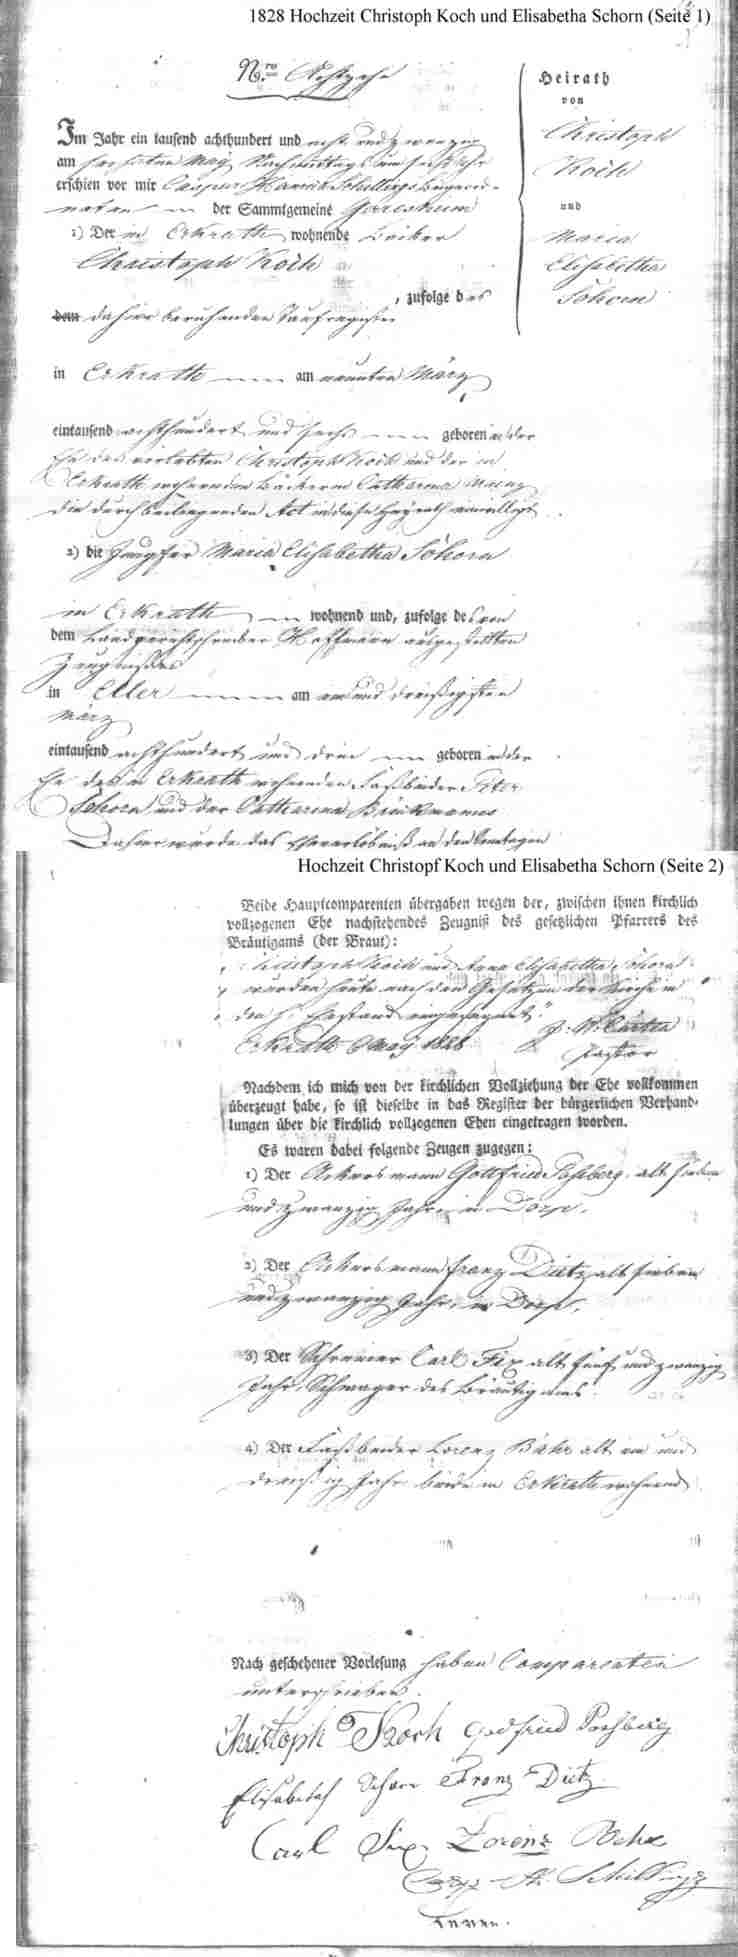 1828 Hochzeit Christoph Koch und Elisabetha Schorn (Seite 1)
Nro. Achtzehn
Heirath
von
Christoph
Koch
und
Maria
Elisabetha
Schorn
Im Jahr ein tausend achthundert und acht und zwanzig
am sechsten May Nachmittags um sechs Uhr
erschien vor mir Caspar Schillings
der Sammtgemeine Gerresheim
1) Der in Erkrath wohnende
Christoph Koch
, zufolge des
dem dahier beruhenden Taufregister
in Erkrath am neunten März
eintausend achthundert und sechs geboren in der
Ehe des verlebten Christoph Koch und der in
Erkrath wohnenden Bäckerin Catharina
die durch beiliegenden Act in diese Heyrath einwilligt
2) die Jungfer Maria Elisabetha Schorn
in Erkrath wohnend und, zufolge des von
dem Landgerichtschreiber Hoffmann ausgestellten
Zeugnisses
in Eller am ein und dreißigsten
März
eintausend achthundert und drei geboren in der
Ehe des in Erkrath wohnenden Faßbinder Peter
Schorn und der Catharina Brinkmanns
Dahier wurde das Eheverlöbniß an den Sonntagen
Hochzeit Christopf Koch und Elisabetha Schorn (Seite 2)
Beide Hauptcomparenten übergaben wegen der, zwischen ihnen kirchlich
vollzogenen Ehe nachstehendes Zeugniß des gesetzlichen Pfarrers des
Bräutigams (der Braut):
Christoph Koch und Anna Elisabetha Schorn
wurden heute nach den Gesetzen der Kirche in
den h. Ehestand eingesegnet."
Erkrath 6 May 1828
Pastor
Nachdem ich mich von der kirchlichen Vollziehung der Ehe vollkommen
überzeugt habe, so ist dieselbe in das Register der bürgerlichen Verhand-
lungen über die kirchlich vollzogenen Ehen eingetragen worden.
Es waren dabei folgende Zeugen zugegen:
1) Der Ackersmann Gottfried Poschberg, alt sieben
und zwanzig Jahr, in Dorp.
2) Der Ackersmann Franz Dietz alt sieben
und zwanzig Jahr, in Dorp.
3) Der Schreiner Carl Fix alt fünf und zwanzig
Jahr, Schwager des Bräutigams.
4) Der Faßbinder Lorenz Bahr alt ein und
dreißig Jahr beide in Erkrath wohnend.
Nach geschehener Vorlesung haben Comparenten
unterschrieben.
Christoph Koch Godfried Poschberg
Elisabeth Schorn Franz Dietz
Carl Fix Lorenz
Schillings